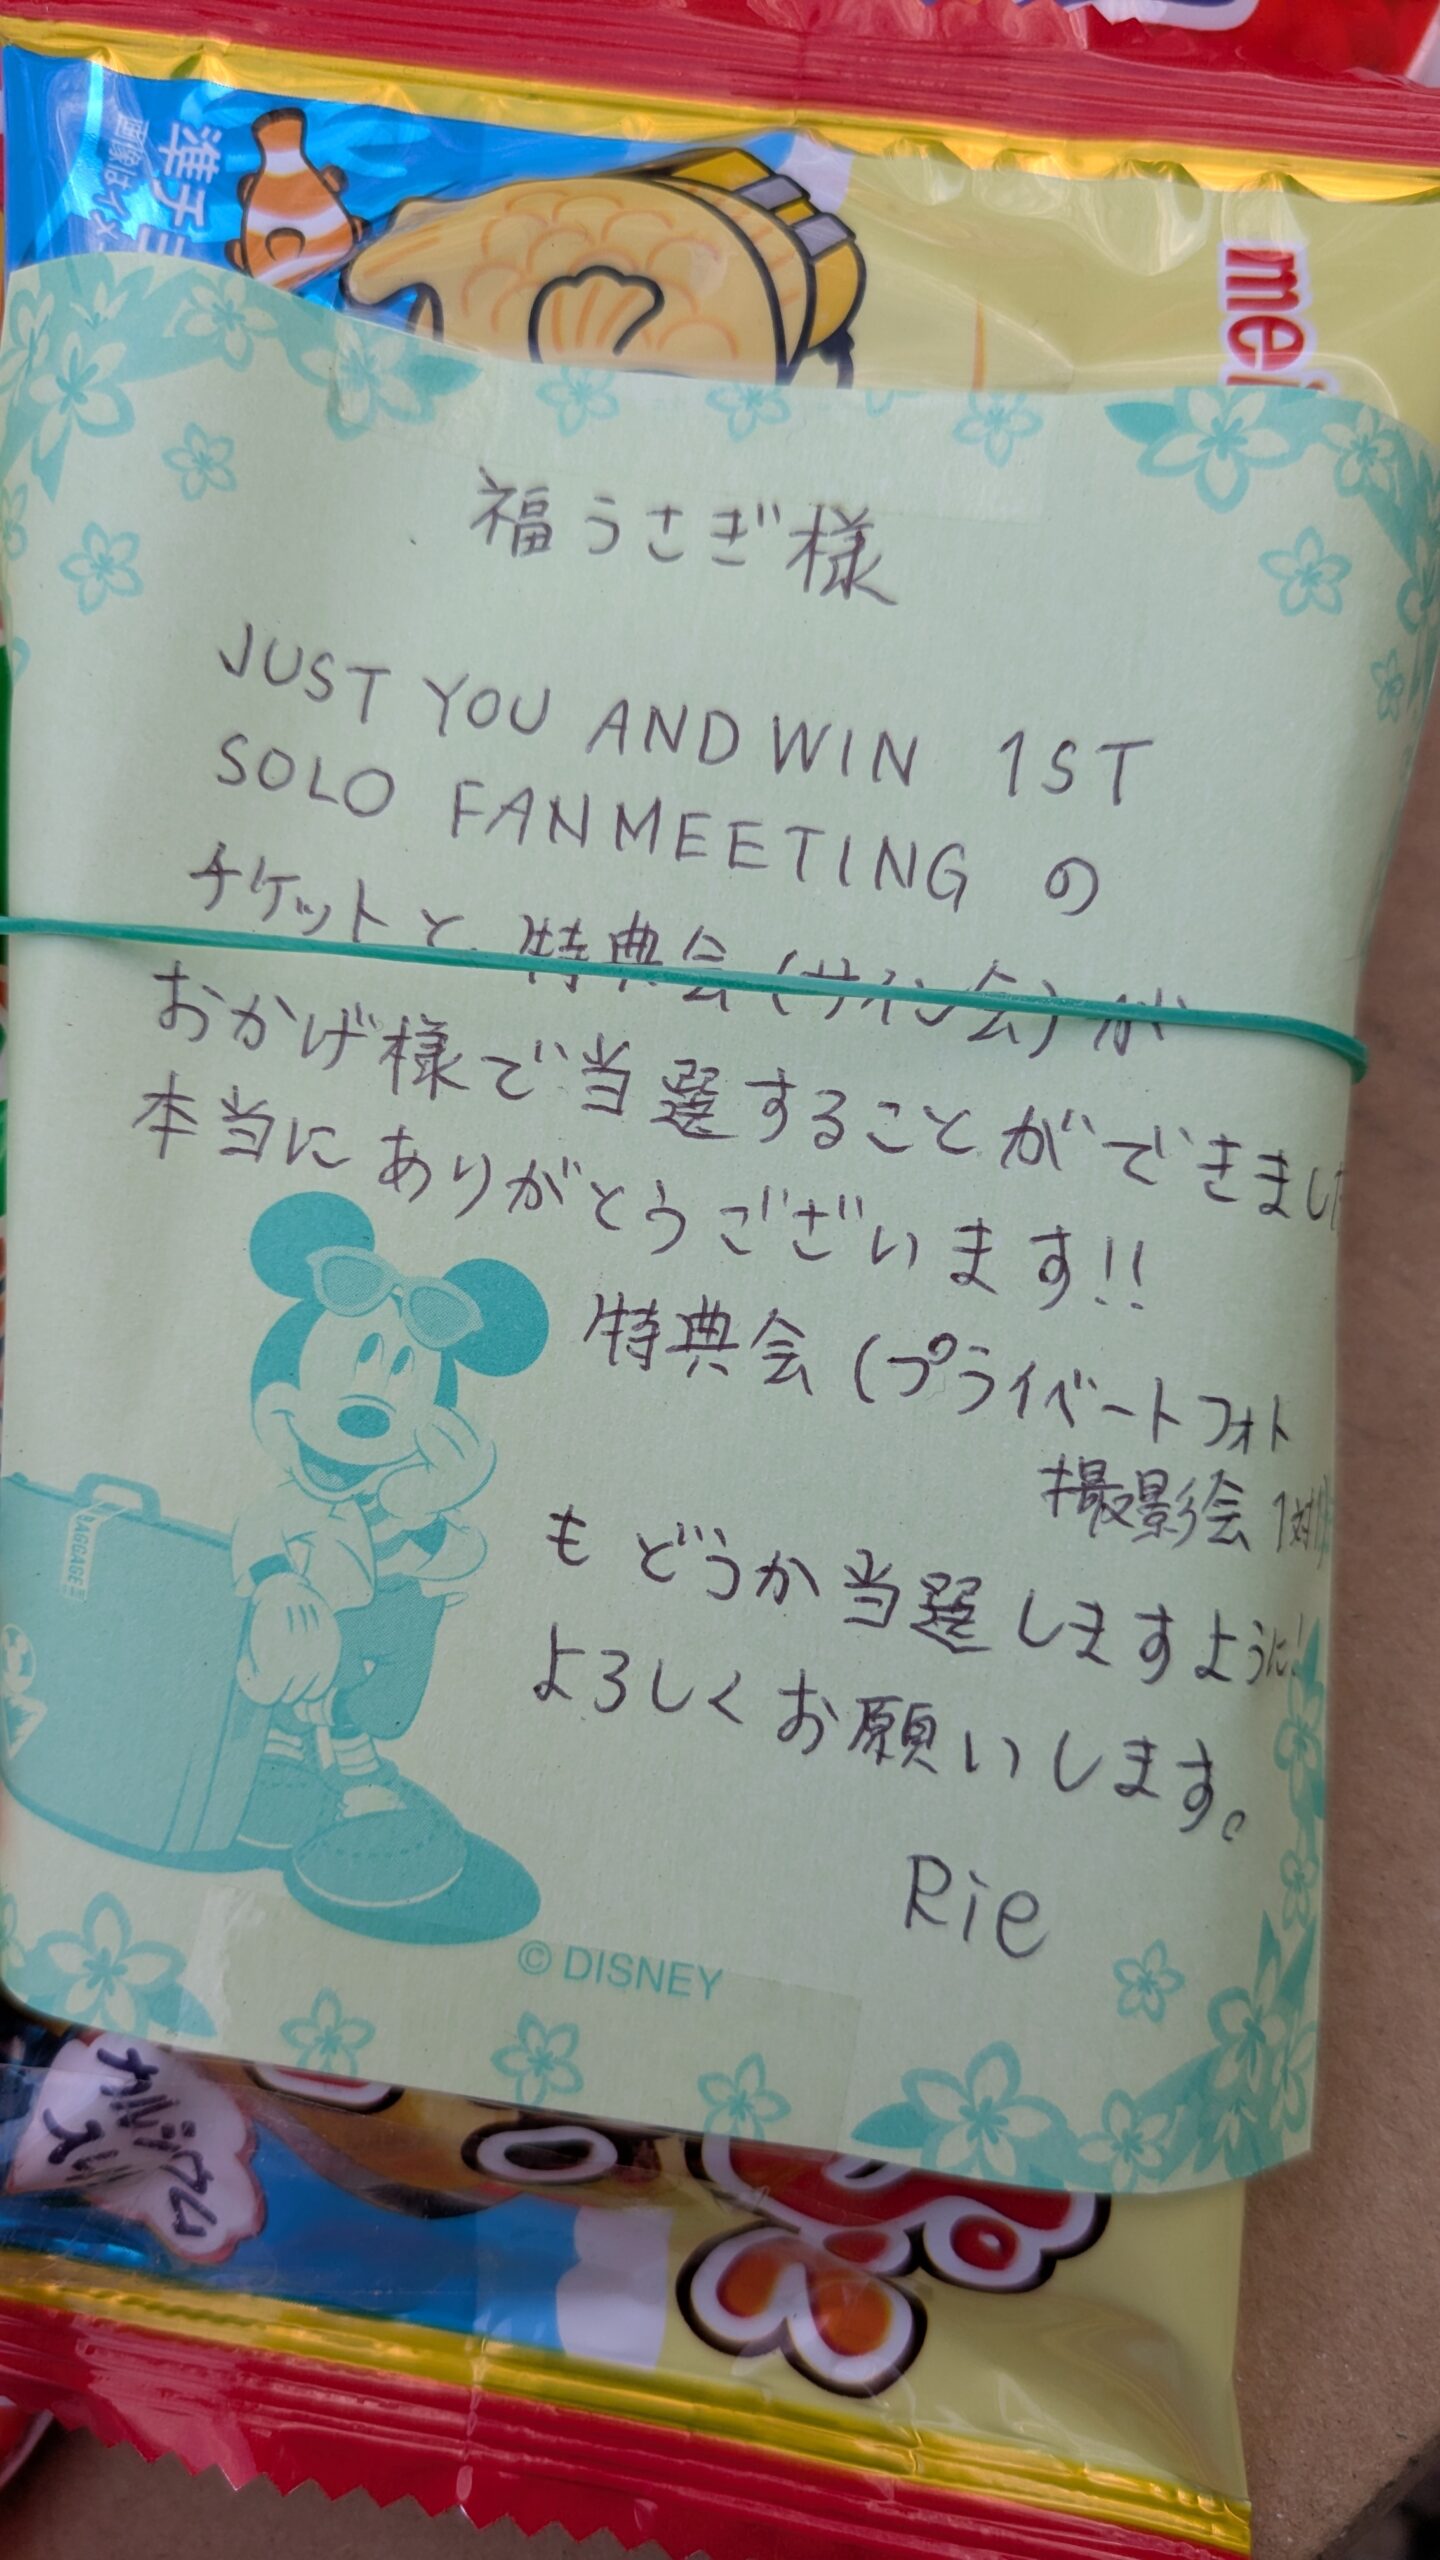 準チョ
画像はイメ
mei
福うさぎ様
JUST YOU AND WIN 1ST
SOLO FANMEETING の
チケットと 特典会(サイン会)が
おかげ様で当選することができました
本当にありがとうございます!!
特典会(プライベートフォト
撮影会 1対1)
もどうか当選しますように!
よろしくお願いします。
Rie
BAGGAGE
© DISNEY
カルシウム
入り